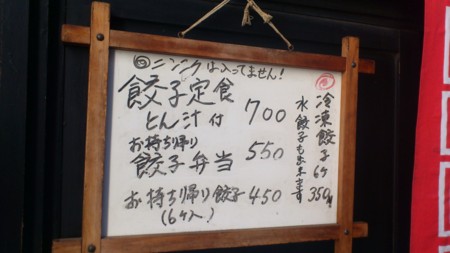 ニンニクは入ってません!
餃子定食
とん汁付 700
お持ち帰り
餃子弁当 550
お持ち帰り餃子 450
(6ヶ入!)
冷凍餃子6ケ350円
水餃子も出来ます